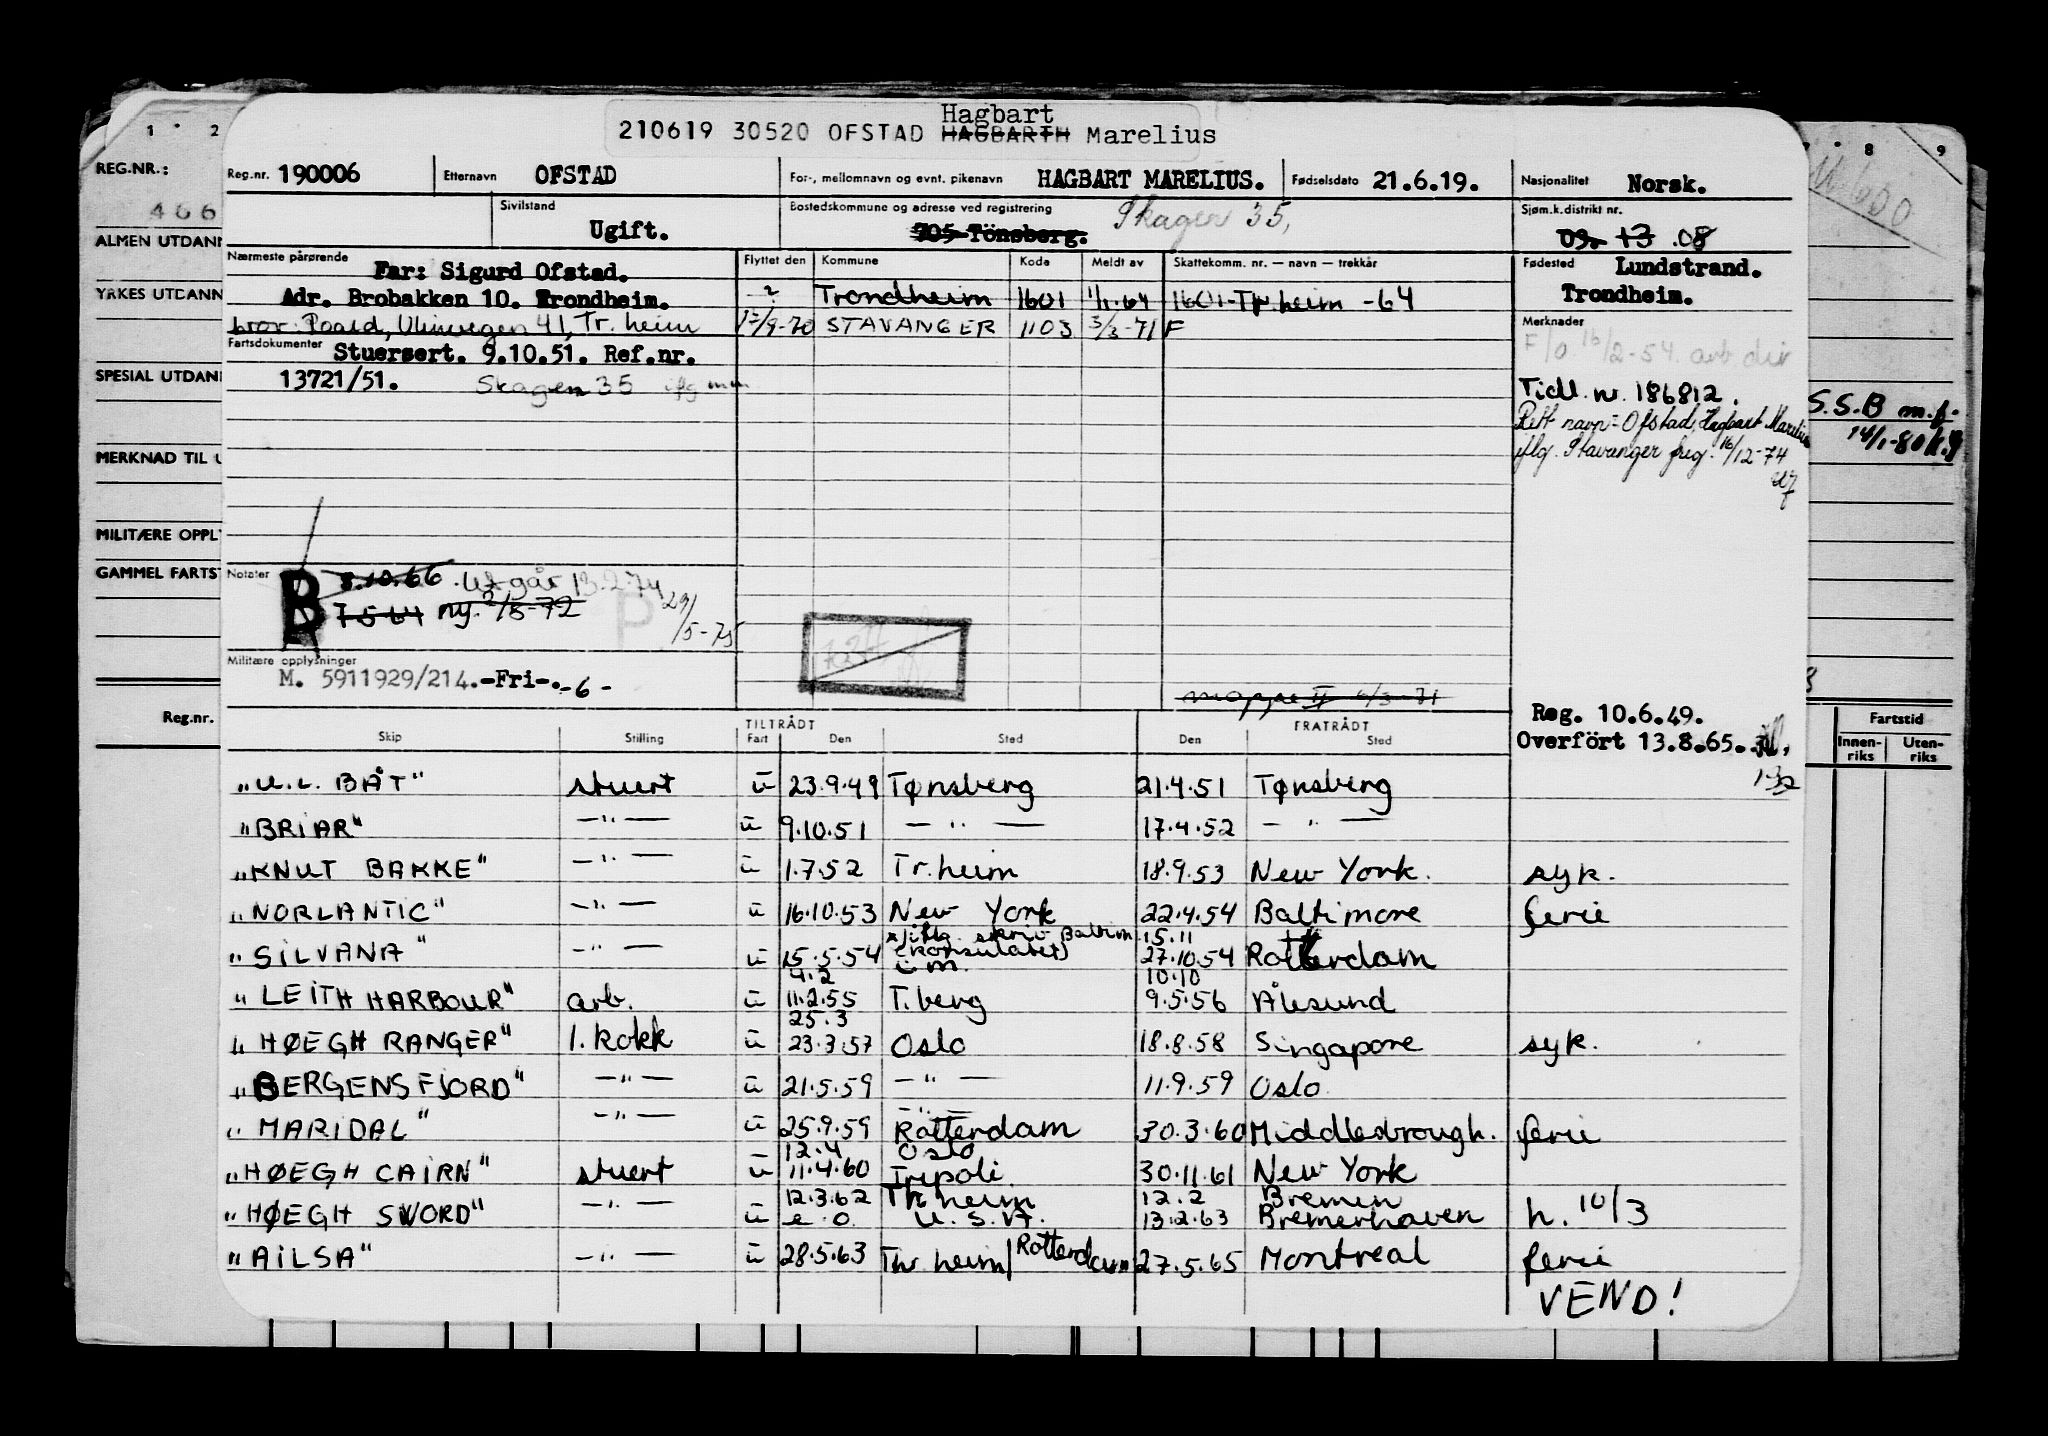 Hagbart
210619 30520 OFSTAD HAGBARTH Marelius
Reg.nr. 190006 Etternavn OFSTAD For-, mellomnavn og evnt. pikenavn HAGBART MARELIUS. Fødselsdato 21.6.19. Nasjonalitet Norsk.
Sivilstand Ugift. Bostedskommune og adresse ved registrering 705 Tönsberg. Skagen 35, Sjøm.k.distrikt nr. 09. 13 .08
Nærmeste pårørende Far: Sigurd Ofstad. Flyttet den Kommune Kode Meldt av Skattekomm. nr. — navn — trekkår Fødested Lundstrand.
Adr. Brobakken 10. Trondheim. ? Trondheim 1601 1/1-64 1601-Tr.heim -64 Trondheim.
bror: Roald, Ulinvegen 41, Tr. heim 17/9-70 STAVANGER 1103 3/3-71 F Merknader
Fartsdokumenter Stuersert. 9.10.51. Ref.nr. F/o 16/2-54. arb dir
13721/51. Skagen 35 iflg Tidl. nr. 186812.
Rett navn = Ofstad, Hagbart Marelius
iflg. Stavanger freg. 16/12-74
Notater B 8.10.66 . Utgår 13.2.74
7564 ny. 2/5-72 P 29/5-75
Militære opplysninger
M. 5911929/214.-Fri-.-6-
mappe II 4/3-71
Reg. 10.6.49.
Overfört 13.8.65.
Skip Stilling TILTRÅDT Fart Den Sted FRATRÅDT Den Sted
"U.L. BÅT" stuert u 23.9.49 Tønsberg 21.4.51 Tønsberg
"BRIAR" —"— u 9.10.51 —"— 17.4.52 —"—
"KNUT BAKKE" —"— u 1.7.52 Tr.heim 18.9.53 New York. syk.
"NORLANTIC" —"— u 16.10.53 New York 22.4.54 Baltimore ferie
x) iflg. skriv Baltim 15.11
"SILVANA" —"— u 15.5.54 (konsulatet) 27.10.54 Rotterdam
4.2 10.10
"LEITH HARBOUR" arb. u 11.2.55 T.berg 9.5.56 Ålesund
25.3
"HØEGH RANGER" 1. kokk u 23.3.57 Oslo 18.8.58 Singapore syk.
"BERGENSFJORD" —"— u 21.5.59 —"— 11.9.59 Oslo
—"—
"MARIDAL" —"— u 25.9.59 Rotterdam 30.3.60 Middlesbrough. ferie
12.4 Oslo
"HØEGH CAIRN" stuert u 11.4.60 Tripoli. 30.11.61 New York
12.3.62 Tr.heim 12.2 Bremen
"HØEGH SWORD" —"— u e.o. U.S.A. 13.2.63 Bremerhaven h. 10/3
"AILSA" —"— u 28.5.63 Tr heim/Rotterdam 27.5.65 Montreal ferie
VEND!
1 2
REG.NR.:
466
ALMEN UTDANN
YRKES UTDANN
SPESIAL UTDAN
MERKNAD TIL U
MILITÆRE OPPLY
GAMMEL FARTST
Reg.nr.
8 9
S.S.B m.f.
14/1-80
Fartstid
Innen-riks Uten-riks